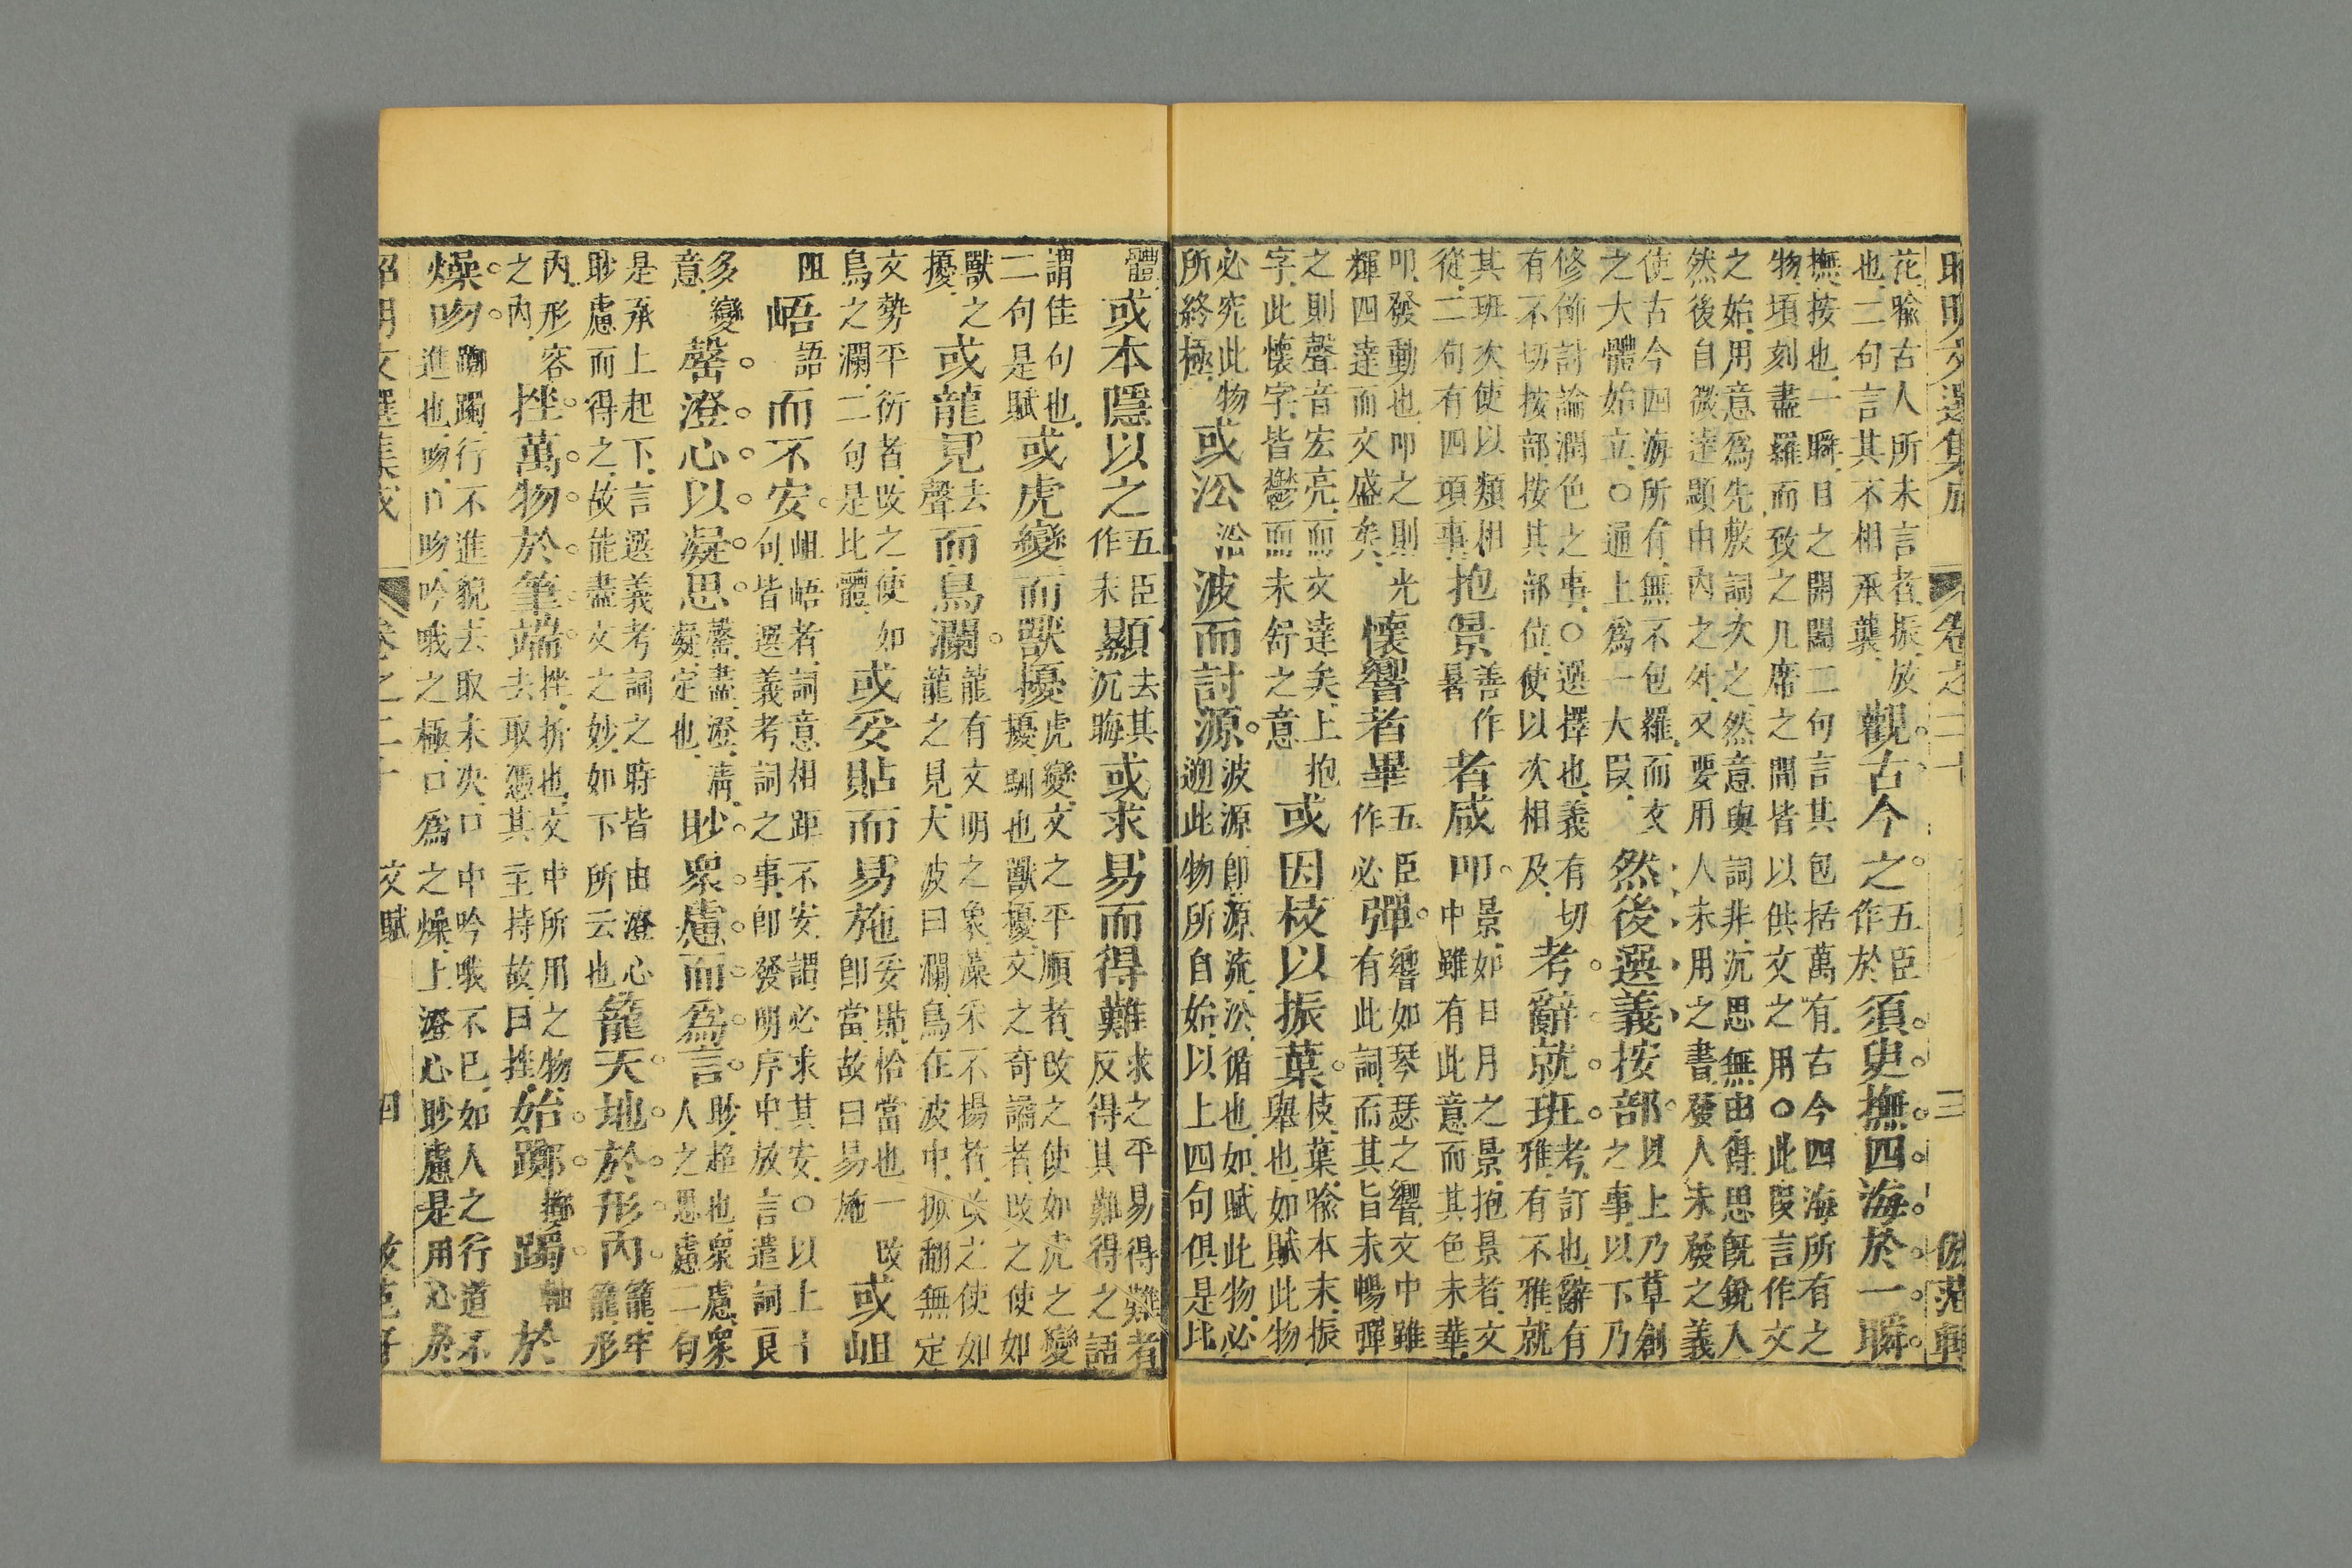 昭明文選集成 卷之二十 三 倣范軒
花喻古人所未言者振放
也二句言其不相承襲
觀古今之
五臣
作於
須臾撫四海於一瞬
撫按也一瞬目之開闔二句言其包括萬有古今四海所有之
物頃刻盡羅而致之几席之間皆以供文之用○此段言作文
之始用意為先敷詞次之然意與詞非沉思無由得思旣銳人
然後自微達顯由內之外又要用人未用之書發人未發之義
使古今四海所有無不包羅而文
之大體始立○通上為一大段
然後選義按部
以上乃草創
之事以下乃
修飾討論潤色之事○選擇也義有切
有不切按部按其部位使以次相及
考辭就班
考訂也辭有
雅有不雅就
其班次使以類相
從二句有四項事
抱景
善作
暑
者咸叩
景如日月之景抱景者文
中雖有此意而其色未華
叩發動也叩之則光
輝四達而文盛矣
懷響者畢
五臣
作必
彈
響如琴瑟之響文中雖
有此詞而其旨未暢彈
之則聲音宏亮而文達矣上抱
字此懷字皆鬱而未舒之意
或因枝以振葉
枝葉喻本末振
舉也如賦此物
必究此物
所終極
或㳂
沿
波而討源
波源卽源流㳂循也如賦此物必
遡此物所自始以上四句俱是比
體
或本隱以之
五臣
作末
顯
去其
沉晦
或求易而得難
求之平易得難者
反得其難得之語
謂佳句也
二句是賦
或虎變而獸擾
虎變文之平順者改之使如虎之變
擾馴也獸擾文之奇譎者改之使如
獸之
擾
或龍見
去
聲
而鳥瀾
龍有文明之象藻采不揚者改之使如
龍之見大波曰瀾鳥在波中掀翻無定
文勢平衍者改之使如
鳥之瀾二句是比體
或妥貼而易施
妥貼恰當也一改
卽當故曰易施
或岨
阻
峿
語
而不安
岨峿者詞意相距不安謂必求其安○以上十
句皆選義考詞之事卽發明序中放言遣詞良
多變
意
罄澄心以凝思
罄盡澄凊
凝定也
眇衆慮而為言
眇超也衆慮衆
人之思慮二句
是承上起下言選義考詞之時皆由澄心
眇慮而得之故能盡文之妙如下所云也
籠天地於形內
籠牢
籠形
內形容
之內
挫萬物於筆端
挫折也文中所用之物
去取憑其主持故曰挫
始躑
擲
躅
軸
於
燥吻
躑躅行不進貌去取未决口中吟哦不已如人之行道不
進也吻口吻吟哦之極口為之燥上澄心眇慮是用心於
昭明文選集成 卷之二十 文賦 四